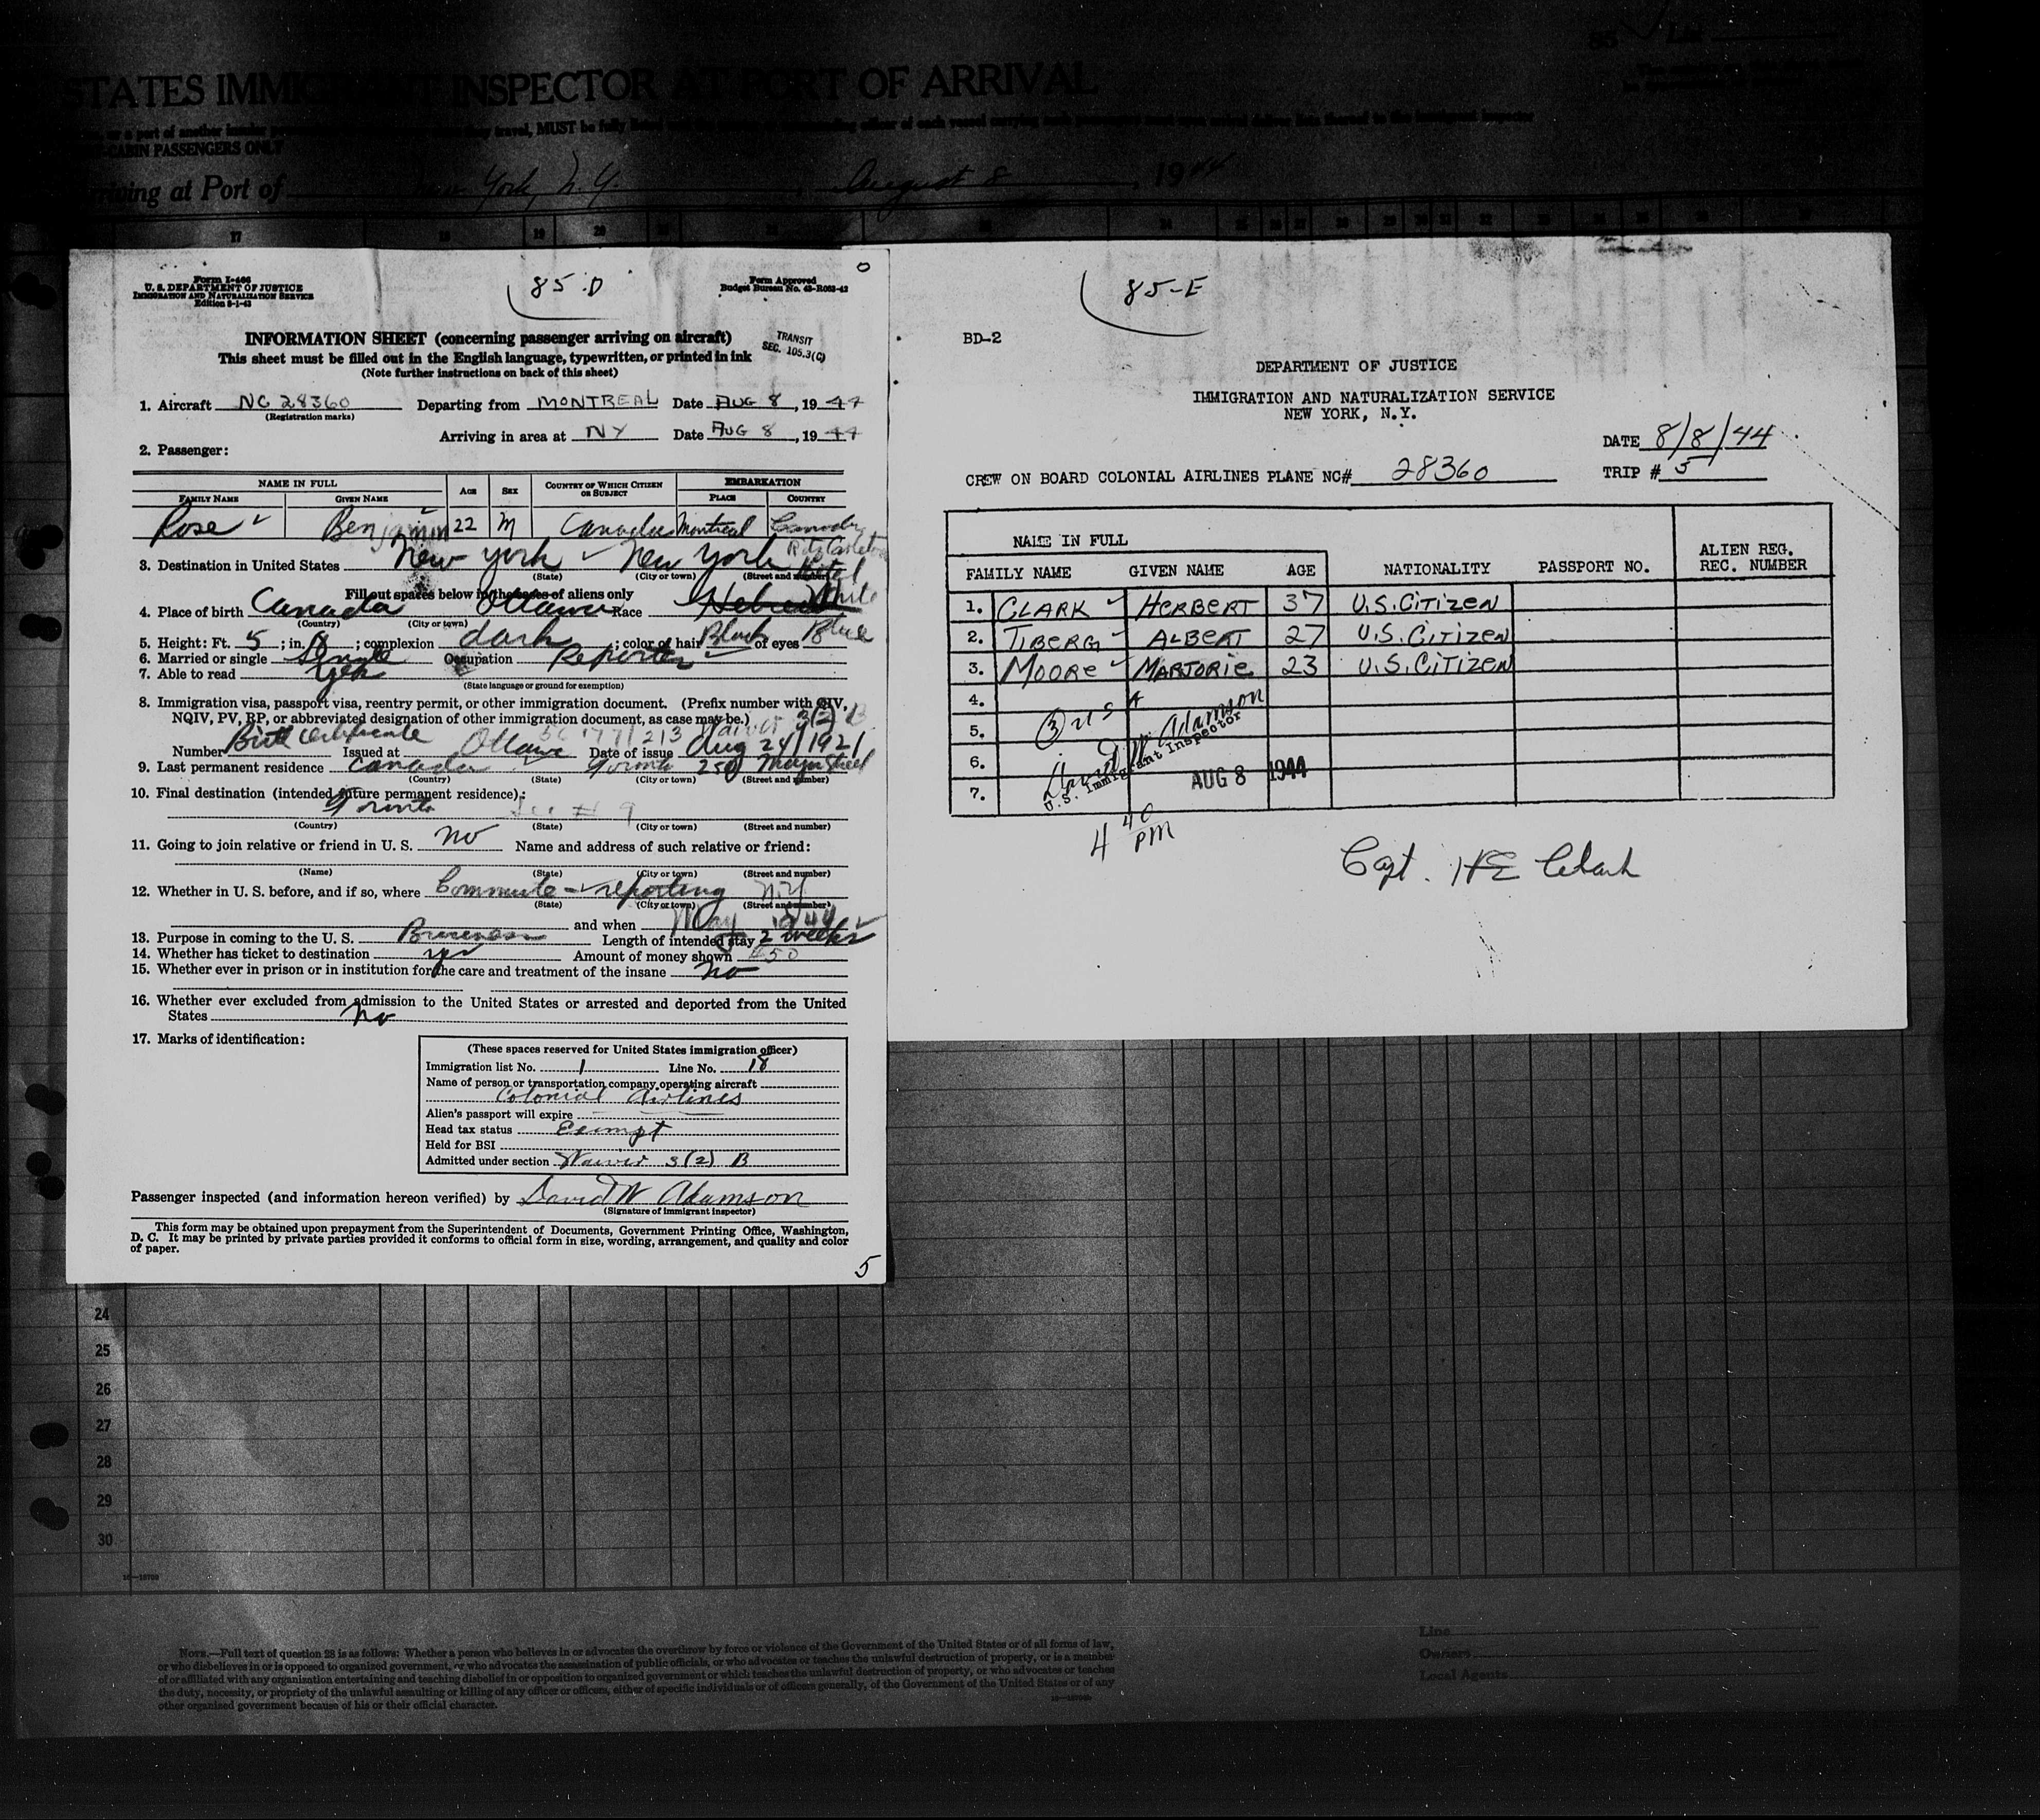 STATES IMMIGRANT INSPECTOR AT PORT OF ARRIVAL
travel, MUST be fully
CABIN PASSENGERS ONLY
Arriving at Port of New York, N.Y. August 8, 1944
17 18 19 20
Form I-466
U. S. DEPARTMENT OF JUSTICE
IMMIGRATION AND NATURALIZATION SERVICE
Edition 8-1-43
85-D
Form Approved
Budget Bureau No. 43-R063-42
INFORMATION SHEET (concerning passenger arriving on aircraft)
TRANSIT
SEC. 105.3(C)
This sheet must be filled out in the English language, typewritten, or printed in ink
(Note further instructions on back of this sheet)
1. Aircraft NC 28360 Departing from MONTREAL Date AUG 8, 1944
(Registration marks)
Arriving in area at NY Date AUG 8, 1944
2. Passenger:
NAME IN FULL AGE SEX COUNTRY OF WHICH CITIZEN OR SUBJECT EMBARKATION
FAMILY NAME GIVEN NAME PLACE COUNTRY
Rose Benjamin 22 M Canada Montreal Canada
Ritz Carleton
Hotel
3. Destination in United States New York New York
(State) (City or town) (Street and number)
Fill out spaces below in the cases of aliens only
4. Place of birth Canada Ottawa Race Hebrew White
(Country) (City or town)
5. Height: Ft. 5; in. 8; complexion dark; color of hair Black of eyes Blue
6. Married or single Single Occupation Reporter
7. Able to read Yes
(State language or ground for exemption)
8. Immigration visa, passport visa, reentry permit, or other immigration document. (Prefix number with QIV,
NQIV, PV, RP, or abbreviated designation of other immigration document, as case may be.) Waiver 3(2) B
Number Birth Certificate Issued at Ottawa Date of issue Aug 24/1921
9. Last permanent residence Canada Toronto 250 Street
(Country) (State) (City or town) (Street and number)
10. Final destination (intended future permanent residence):
Toronto See # 9
(Country) (State) (City or town) (Street and number)
11. Going to join relative or friend in U. S. no Name and address of such relative or friend:
(Name) (State) (City or town) (Street and number)
12. Whether in U. S. before, and if so, where Commute - reporting N.Y.
(State) (City or town) (Street and number)
and when May 1944
13. Purpose in coming to the U. S. Business Length of intended stay 2 weeks
14. Whether has ticket to destination yes Amount of money shown $50
15. Whether ever in prison or in institution for the care and treatment of the insane no
16. Whether ever excluded from admission to the United States or arrested and deported from the United
States no
17. Marks of identification:
(These spaces reserved for United States immigration officer)
Immigration list No. 1 Line No. 18
Name of person or transportation company operating aircraft
Colonial Airlines
Alien's passport will expire
Head tax status Exempt
Held for BSI
Admitted under section Waiver 3(2) B
Passenger inspected (and information hereon verified) by David W Adamson
(Signature of immigrant inspector)
This form may be obtained upon prepayment from the Superintendent of Documents, Government Printing Office, Washington,
D. C. It may be printed by private parties provided it conforms to official form in size, wording, arrangement, and quality and color
of paper.
5
85-E
BD-2
DEPARTMENT OF JUSTICE
IMMIGRATION AND NATURALIZATION SERVICE
NEW YORK, N.Y.
DATE 8/8/44
CREW ON BOARD COLONIAL AIRLINES PLANE NC# 28360 TRIP # 5
NAME IN FULL
FAMILY NAME GIVEN NAME AGE NATIONALITY PASSPORT NO. ALIEN REG. REC. NUMBER
1. CLARK HERBERT 37 U.S. CITIZEN
2. TIBERG ALBERT 27 U.S. CITIZEN
3. MOORE MARJORIE 23 U.S. CITIZEN
4.
5.
6.
7.
David W Adamson
U.S. Immigrant Inspector
AUG 8 1944
4 40 PM
Capt. HE Clark
24
25
26
27
28
29
30
16-10700
NOTE.—Full text of question 28 is as follows: Whether a person who believes in or advocates the overthrow by force or violence of the Government of the United States or of all forms of law,
or who disbelieves in or is opposed to organized government, or who advocates the assassination of public officials, or who advocates or teaches the unlawful destruction of property, or is a member
of or affiliated with any organization entertaining and teaching disbelief in or opposition to organized government or which teaches the unlawful destruction of property, or who advocates or teaches
the duty, necessity, or propriety of the unlawful assaulting or killing of any officer or officers, either of specific individuals or of officers generally, of the Government of the United States or of any
other organized government because of his or their official character.
Line
Owners
Local Agents